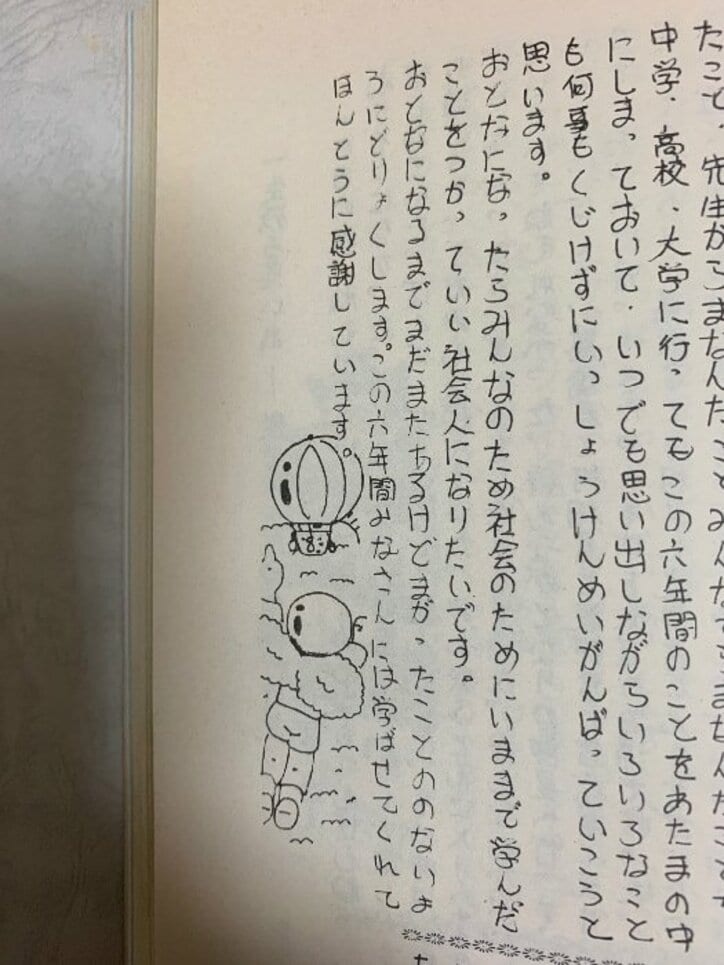 たこと、先生がこまなんたことみんなで
中学、高校、大学に行ってもこの六年間のことをあたまの中
にしまっておいて、いつでも思い出しながらいろいろなこと
も何事もくじけずにいっしょうけんめいがんばっていこうと
思います。
おとなになったらみんなのため社会のためにいままで学んだ
ことをつかっていい社会人になりたいです。
おとなになるまでまだまたちあるけどまがったことののないよ
うにどりょくします。この六年間みなさんには学ばせてくれて
ほんとうに感謝しています。